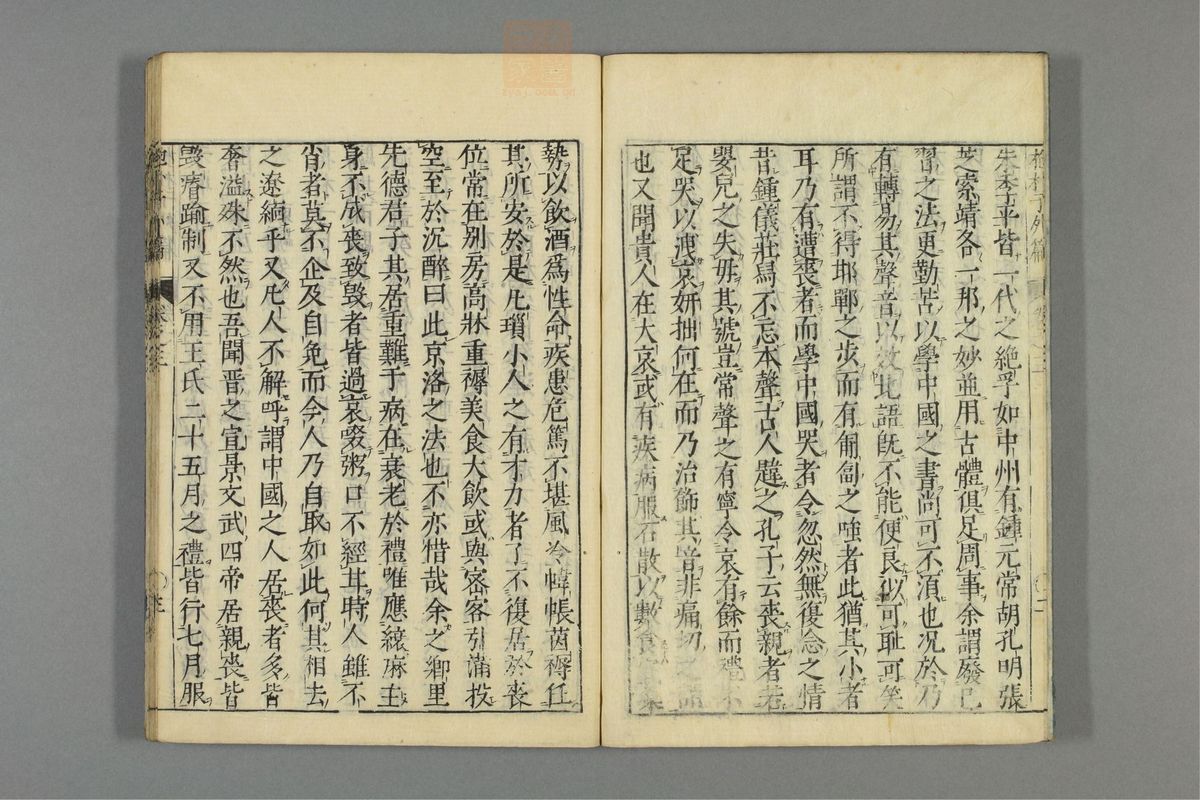 朱季平皆一代之絶手如中州有鍾元常胡孔明張
芝索靖各一邦之妙並用古體俱足周事余謂廢已
習之法更勤苦以學中國之書尚可不湏也况於乃
有轉易其聲音以效北語旣不能便良似可耻可笑
所謂不得邯鄲之步而有匍匐之嗤者此猶其小者
耳乃有遭喪者而學中國哭者令忽然無復念之情
昔鍾儀莊舄不忘本聲古人韙之孔子云喪親者若
嬰兒之失毋其號豈常聲之有寧令哀有餘而禮不
足哭以洩哀妍拙何在而乃治飾其音非痛切之謂
也又聞貴人在大哀或有疾病服石散以數食
勢以飲酒爲性命疾患危篤不堪風冷幃帳茵褥任
其所安於是凡瑣小人之有才力者了不復居於喪
位常在别房高牀重褥美食大飲或與宻客引滿投
空至於沉醉曰此京洛之法也不亦惜哉余之鄉里
先德君子其居重難于病在衰老於禮唯應縗麻主
身不成喪致毁者皆過哀啜粥口不經甘時人雖不
肖者莫不企及自免而今人乃自取如此何其相去
之遼緬乎又凡人不解呼謂中國之人居喪者多皆
奢溢殊不然也吾聞晋之宣景文武四帝居親喪皆
毁瘠踰制又不用王氏二十五月之禮皆行七月服